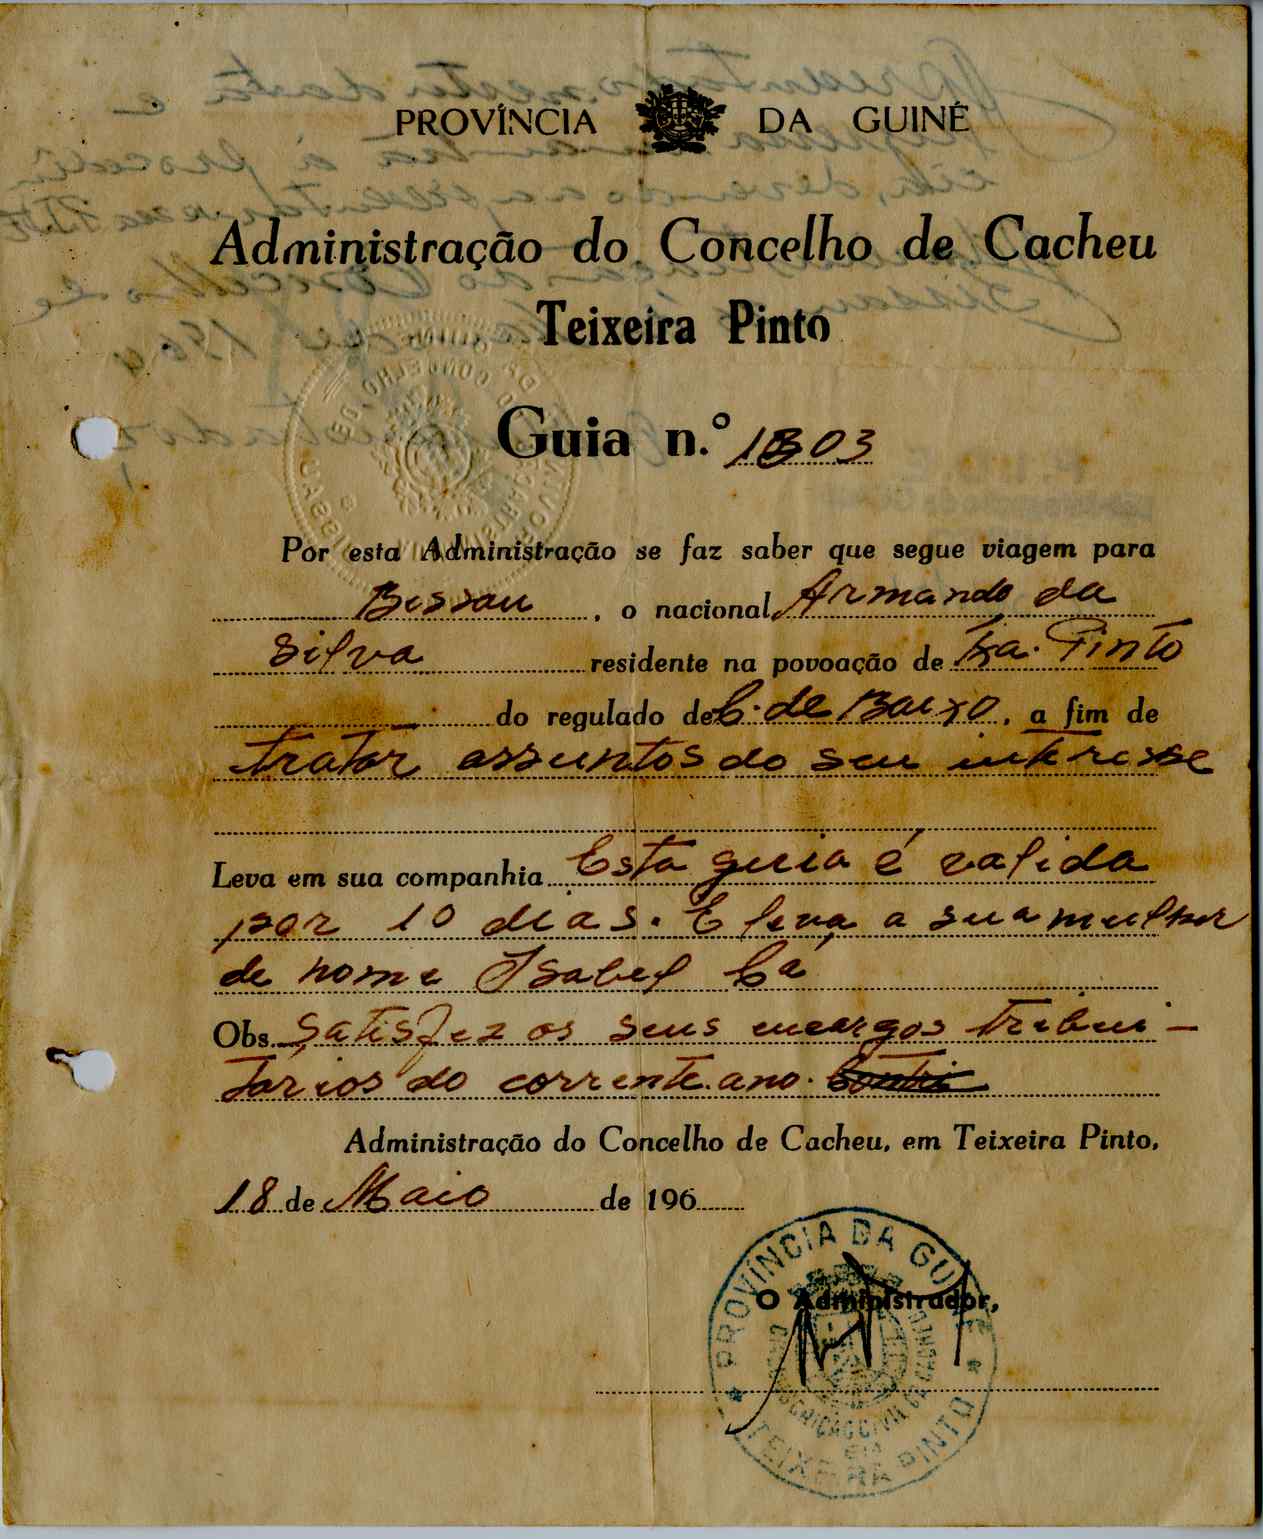 PROVÍNCIA DA GUINÉ
Administração do Concelho de Cacheu
Teixeira Pinto
Guia n.º 1303
Por esta Administração se faz saber que segue viagem para
Bissau, o nacional Armando da
Silva residente na povoação de Txa. Pinto
do regulado de C. de Baixo, a fim de
tratar assuntos do seu interesse
Leva em sua companhia Esta guia é valida
por 10 dias. E leva a sua mulher
de nome Isabel Cá
Obs. Satisfez os seus encargos tribui-
tários do corrente ano.
Administração do Concelho de Cacheu, em Teixeira Pinto,
18 de Maio de 196
O Administrador,
PROVÍNCIA DA GUINÉ
TEIXEIRA PINTO